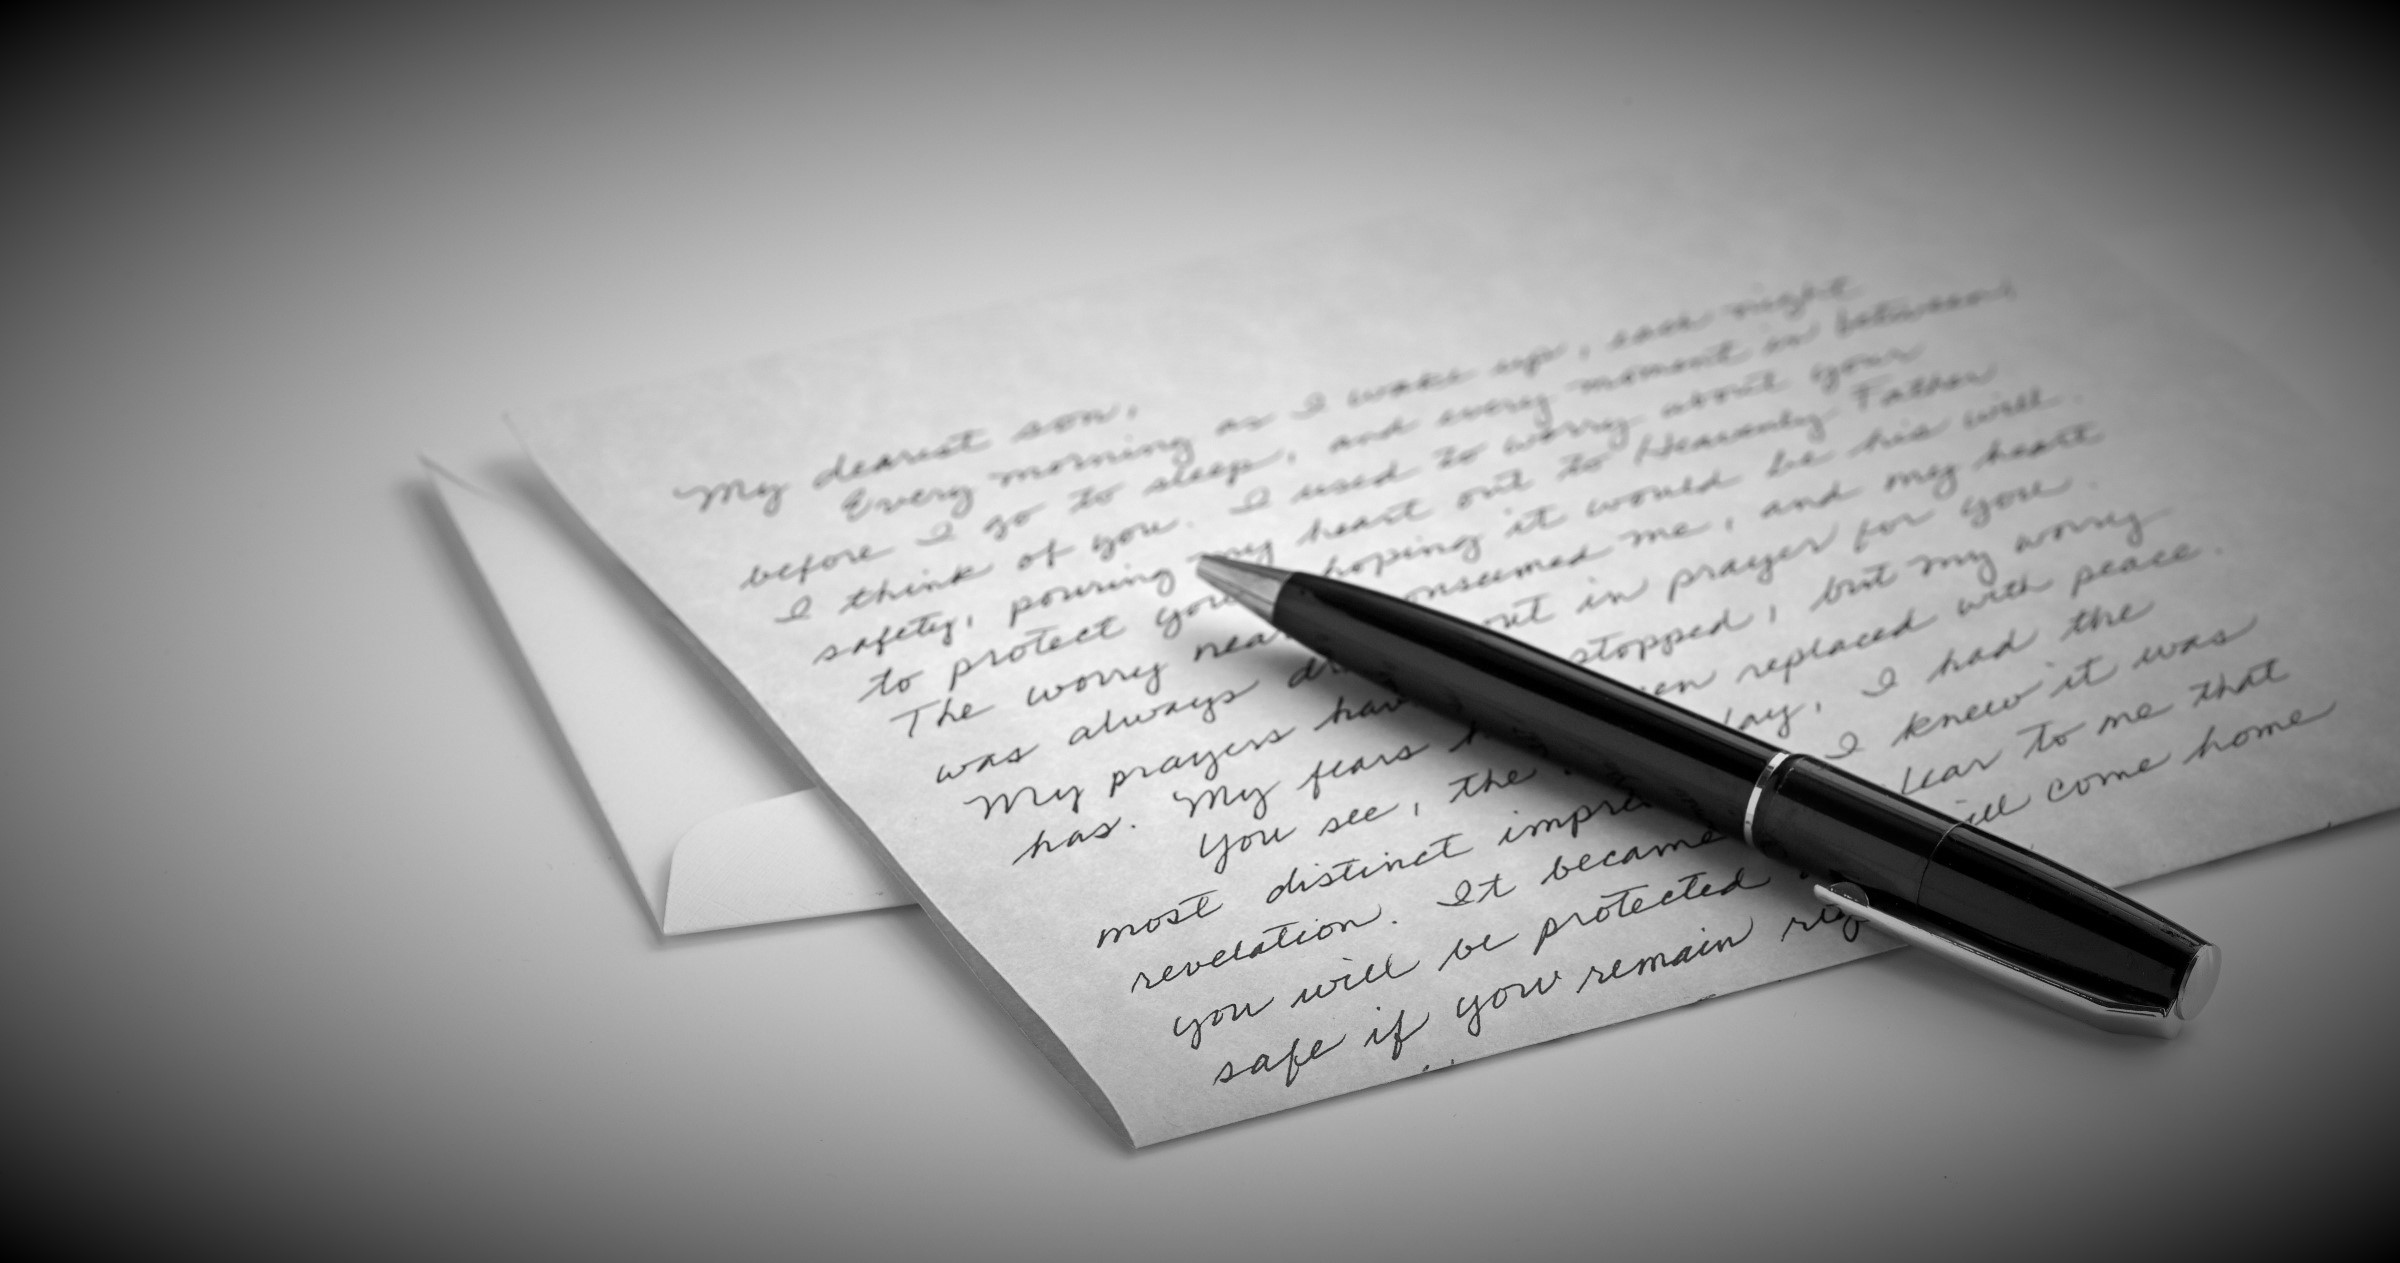 My dearest son,
Every morning as I wake up, each night
before I go to sleep, and every moment in between,
I think of you. I used to worry about your
safety, pouring my heart out to Heavenly Father
to protect you hoping it would be his will.
The worry me, and my heart
was always out in prayer for you.
My prayers stopped, but my worry
has. My fears replaced with peace.
You see, the I had the
most distinct I knew it was
revelation. It became to me that
you will be protected come home
safe if you remain